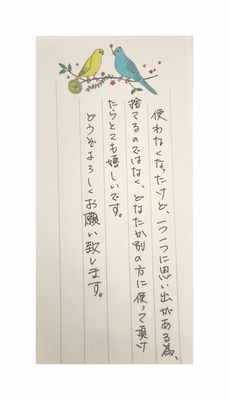 使わなくなったけど、一つ一つに思い出がある為、
捨てるのではなく、どなたか別の方に使って頂け
たらとても嬉しいです。
どうぞよろしくお願い致します。